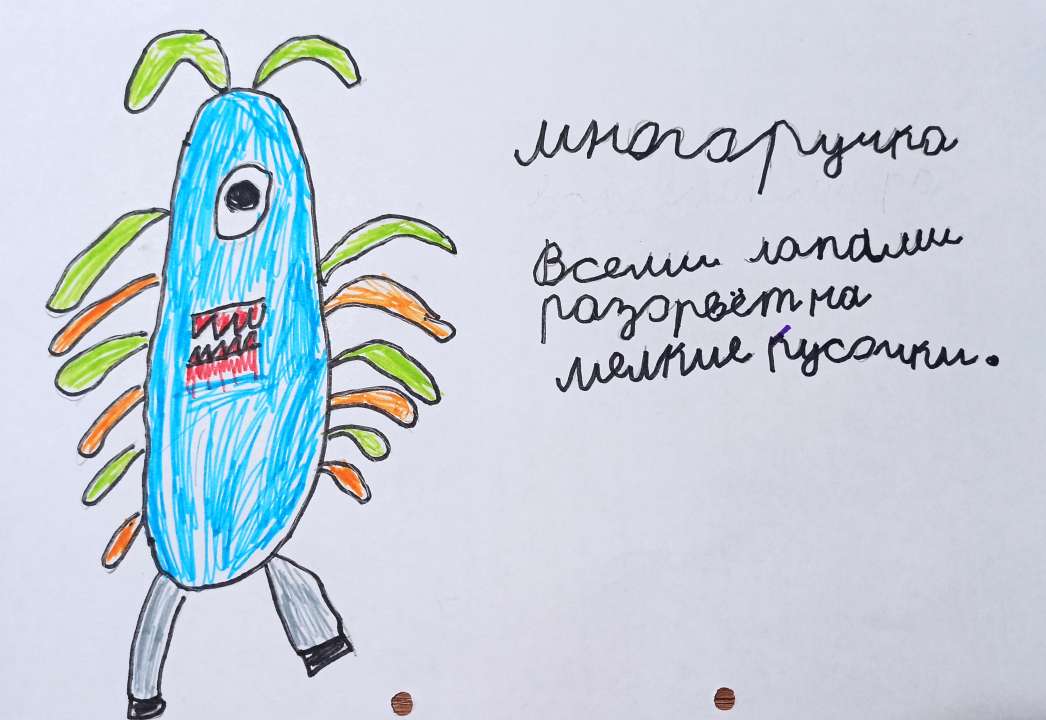 многоручка
Всеми лапами
разорвёт на
мелкие кусочки.